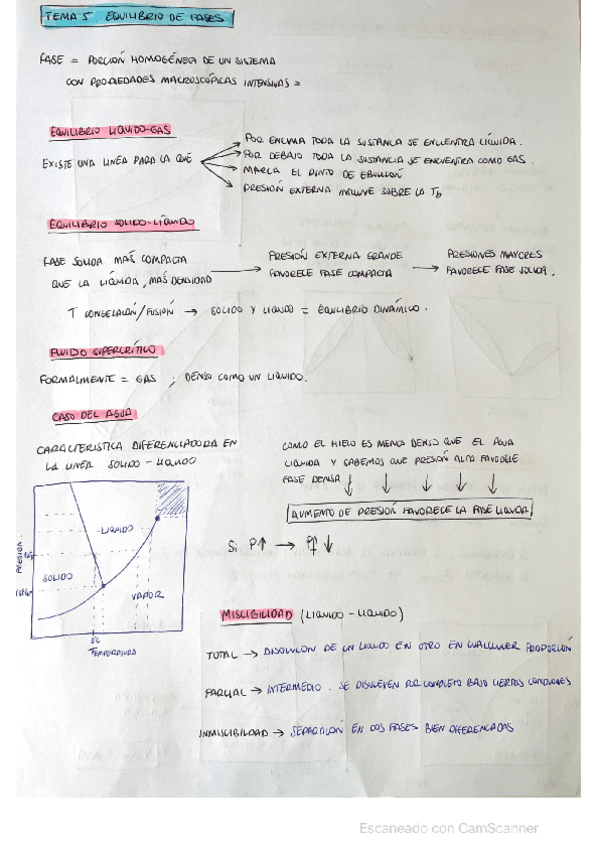 TEMA 5 EQUILIBRIO DE FASES
FASE = PORCIÓN HOMOGÉNEA DE UN SISTEMA
CON PROPIEDADES MACROSCÓPICAS INTENSIVAS =
EQUILIBRIO LÍQUIDO-GAS
EXISTE UNA LINEA PARA LA QUE
POR ENCIMA TODA LA SUSTANCIA SE ENCUENTRA LÍQUIDA.
POR DEBAJO TODA LA SUSTANCIA SE ENCUENTRA COMO GAS.
MARCA EL PUNTO DE EBULLICIÓN
PRESIÓN EXTERNA INFLUYE SOBRE LA Tb
EQUILIBRIO SOLIDO-LÍQUIDO
FASE SOLIDA MAS COMPACTA
QUE LA LÍQUIDA, MAS DENSIDAD
→ PRESIÓN EXTERNA GRANDE
FAVORECE FASE COMPACTA
→ PRESIONES MAYORES
FAVORECE FASE SOLIDA.
T CONGELACIÓN/FUSIÓN → SOLIDO Y LIQUIDO = EQUILIBRIO DINÁMICO.
FLUIDO SUPERCRÍTICO
FORMALMENTE = GAS ; DENSO COMO UN LIQUIDO.
CASO DEL AGUA
CARACTERISTICA DIFERENCIADORA EN
LA LINEA SOLIDO - LIQUIDO
COMO EL HIELO ES MENOS DENSO QUE EL AGUA
LIQUIDA Y SABEMOS QUE PRESIÓN ALTA FAVORECE
FASE DENSA
AUMENTO DE PRESIÓN FAVORECE LA FASE LIQUIDA
Si P↑ → Pf ↓
PRESIÓN
LIQUIDO
SOLIDO
VAPOR
TEMPERATURA
MISCIBILIDAD (LIQUIDO - LIQUIDO)
TOTAL → DISOLUCION DE UN LIQUIDO EN OTRO EN CUALQUIER PROPORCIÓN
PARCIAL → INTERMEDIO. SE DISUELVEN POR COMPLETO BAJO CIERTAS CONDICIONES
INMISCIBILIDAD → SEPARACIÓN EN DOS FASES BIEN DIFERENCIADAS
Escaneado con CamScanner